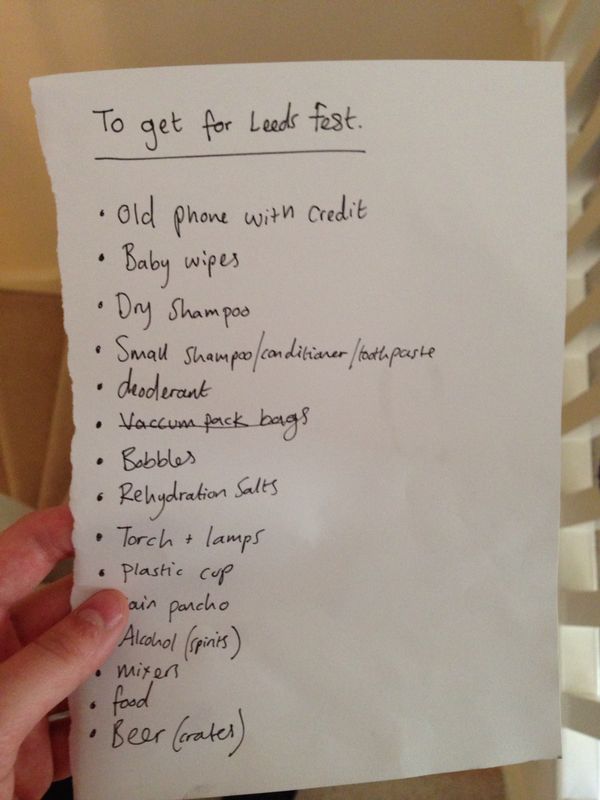 To get for Leeds Fest.
• Old phone with credit
• Baby wipes
• Dry Shampoo
• Small shampoo/conditioner/toothpaste
• deoderant
• Vaccum pack bags
• Bobbles
• Rehydration Salts
• Torch + lamps
• Plastic cup
ain poncho
Alcohol (spirits)
• mixers
• food
• Beer (crates)